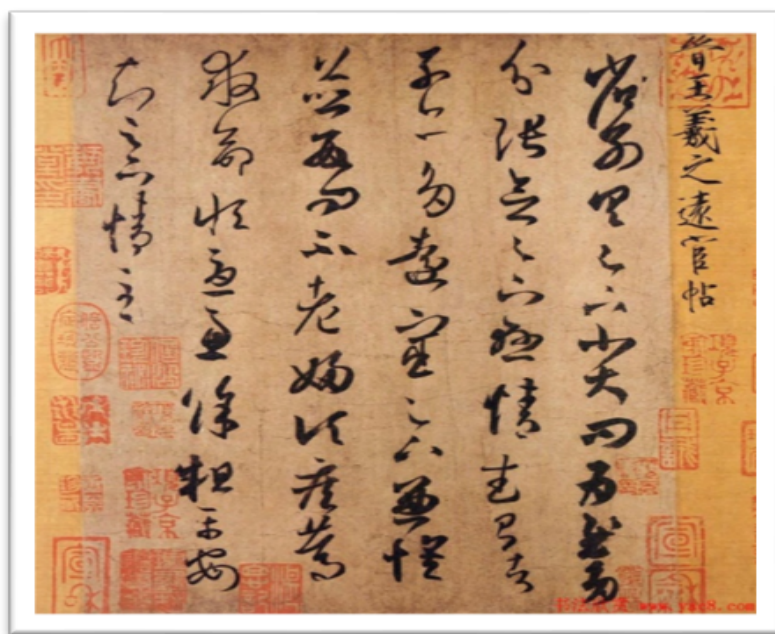 晉王羲之遠宦帖
省別具足下小大問為慰多
分張念足下懸情武昌諸
子亦多遠宦足下兼懷
並數問不老婦頃疾篤
救命恒憂慮餘粗平安
知足下情至
www.yac8.com